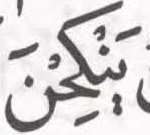 يَنْكِحْنَ